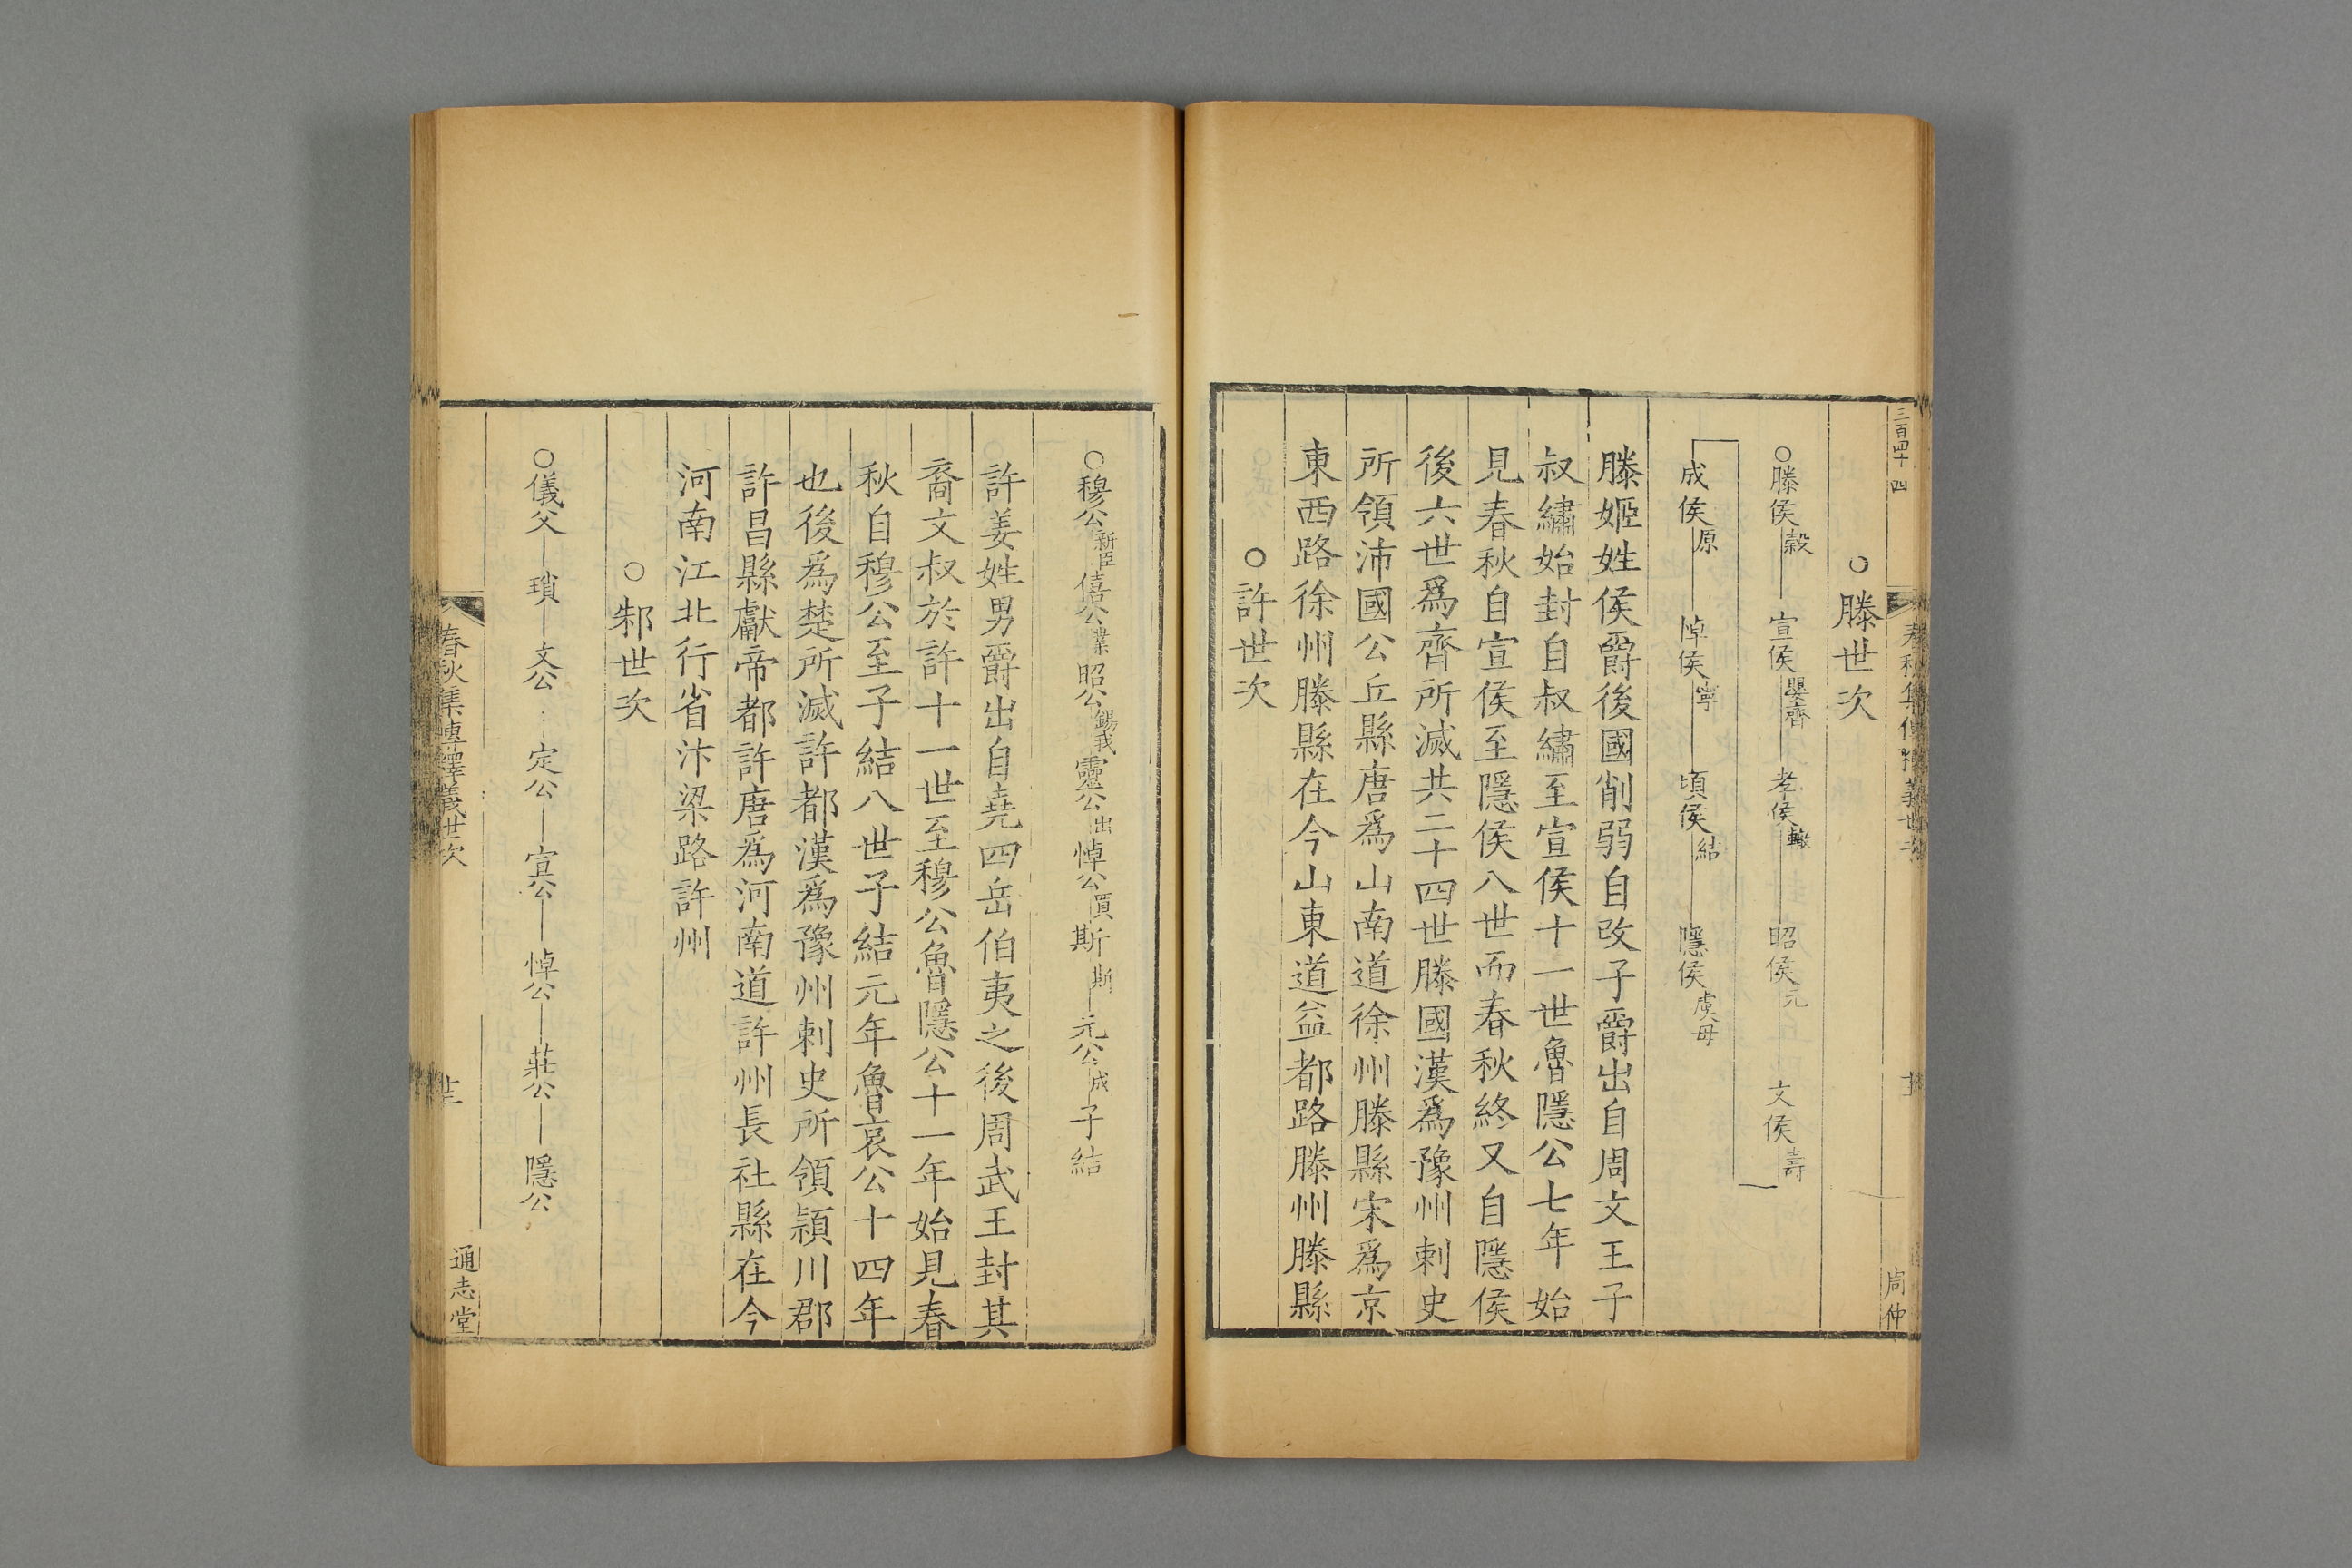 三百四十四
春秋集傳釋義世次
周仲
○滕世次
○滕侯穀 宣侯嬰齊 孝侯 昭侯元 文侯壽
成侯原 悼侯寧 頃侯結 隱侯虞母
滕姬姓侯爵後國削弱自改子爵出自周文王子
叔繡始封自叔繡至宣侯十一世魯隱公七年始
見春秋自宣侯至隱侯八世而春秋終又自隱侯
後六世爲齊所滅共二十四世滕國漢爲豫州刺史
所領沛國公丘縣唐爲山南道徐州滕縣宋爲京
東西路徐州滕縣在今山東道益都路滕州滕縣
○許世次
○穆公新臣 僖公業 昭公錫我 靈公出 悼公買 斯斯 元公成 子結
許姜姓男爵出自堯四岳伯夷之後周武王封其
裔文叔於許十一世至穆公魯隱公十一年始見春
秋自穆公至子結八世子結元年魯哀公十四年
也後爲楚所滅許都漢爲豫州刺史所領潁川郡
許昌縣獻帝都許唐爲河南道許州長社縣在今
河南江北行省汴梁路許州
○邾世次
○儀父 瑣 文公 定公 宣公 悼公 莊公 隱公
春秋集傳釋義世次
廿三
通志堂